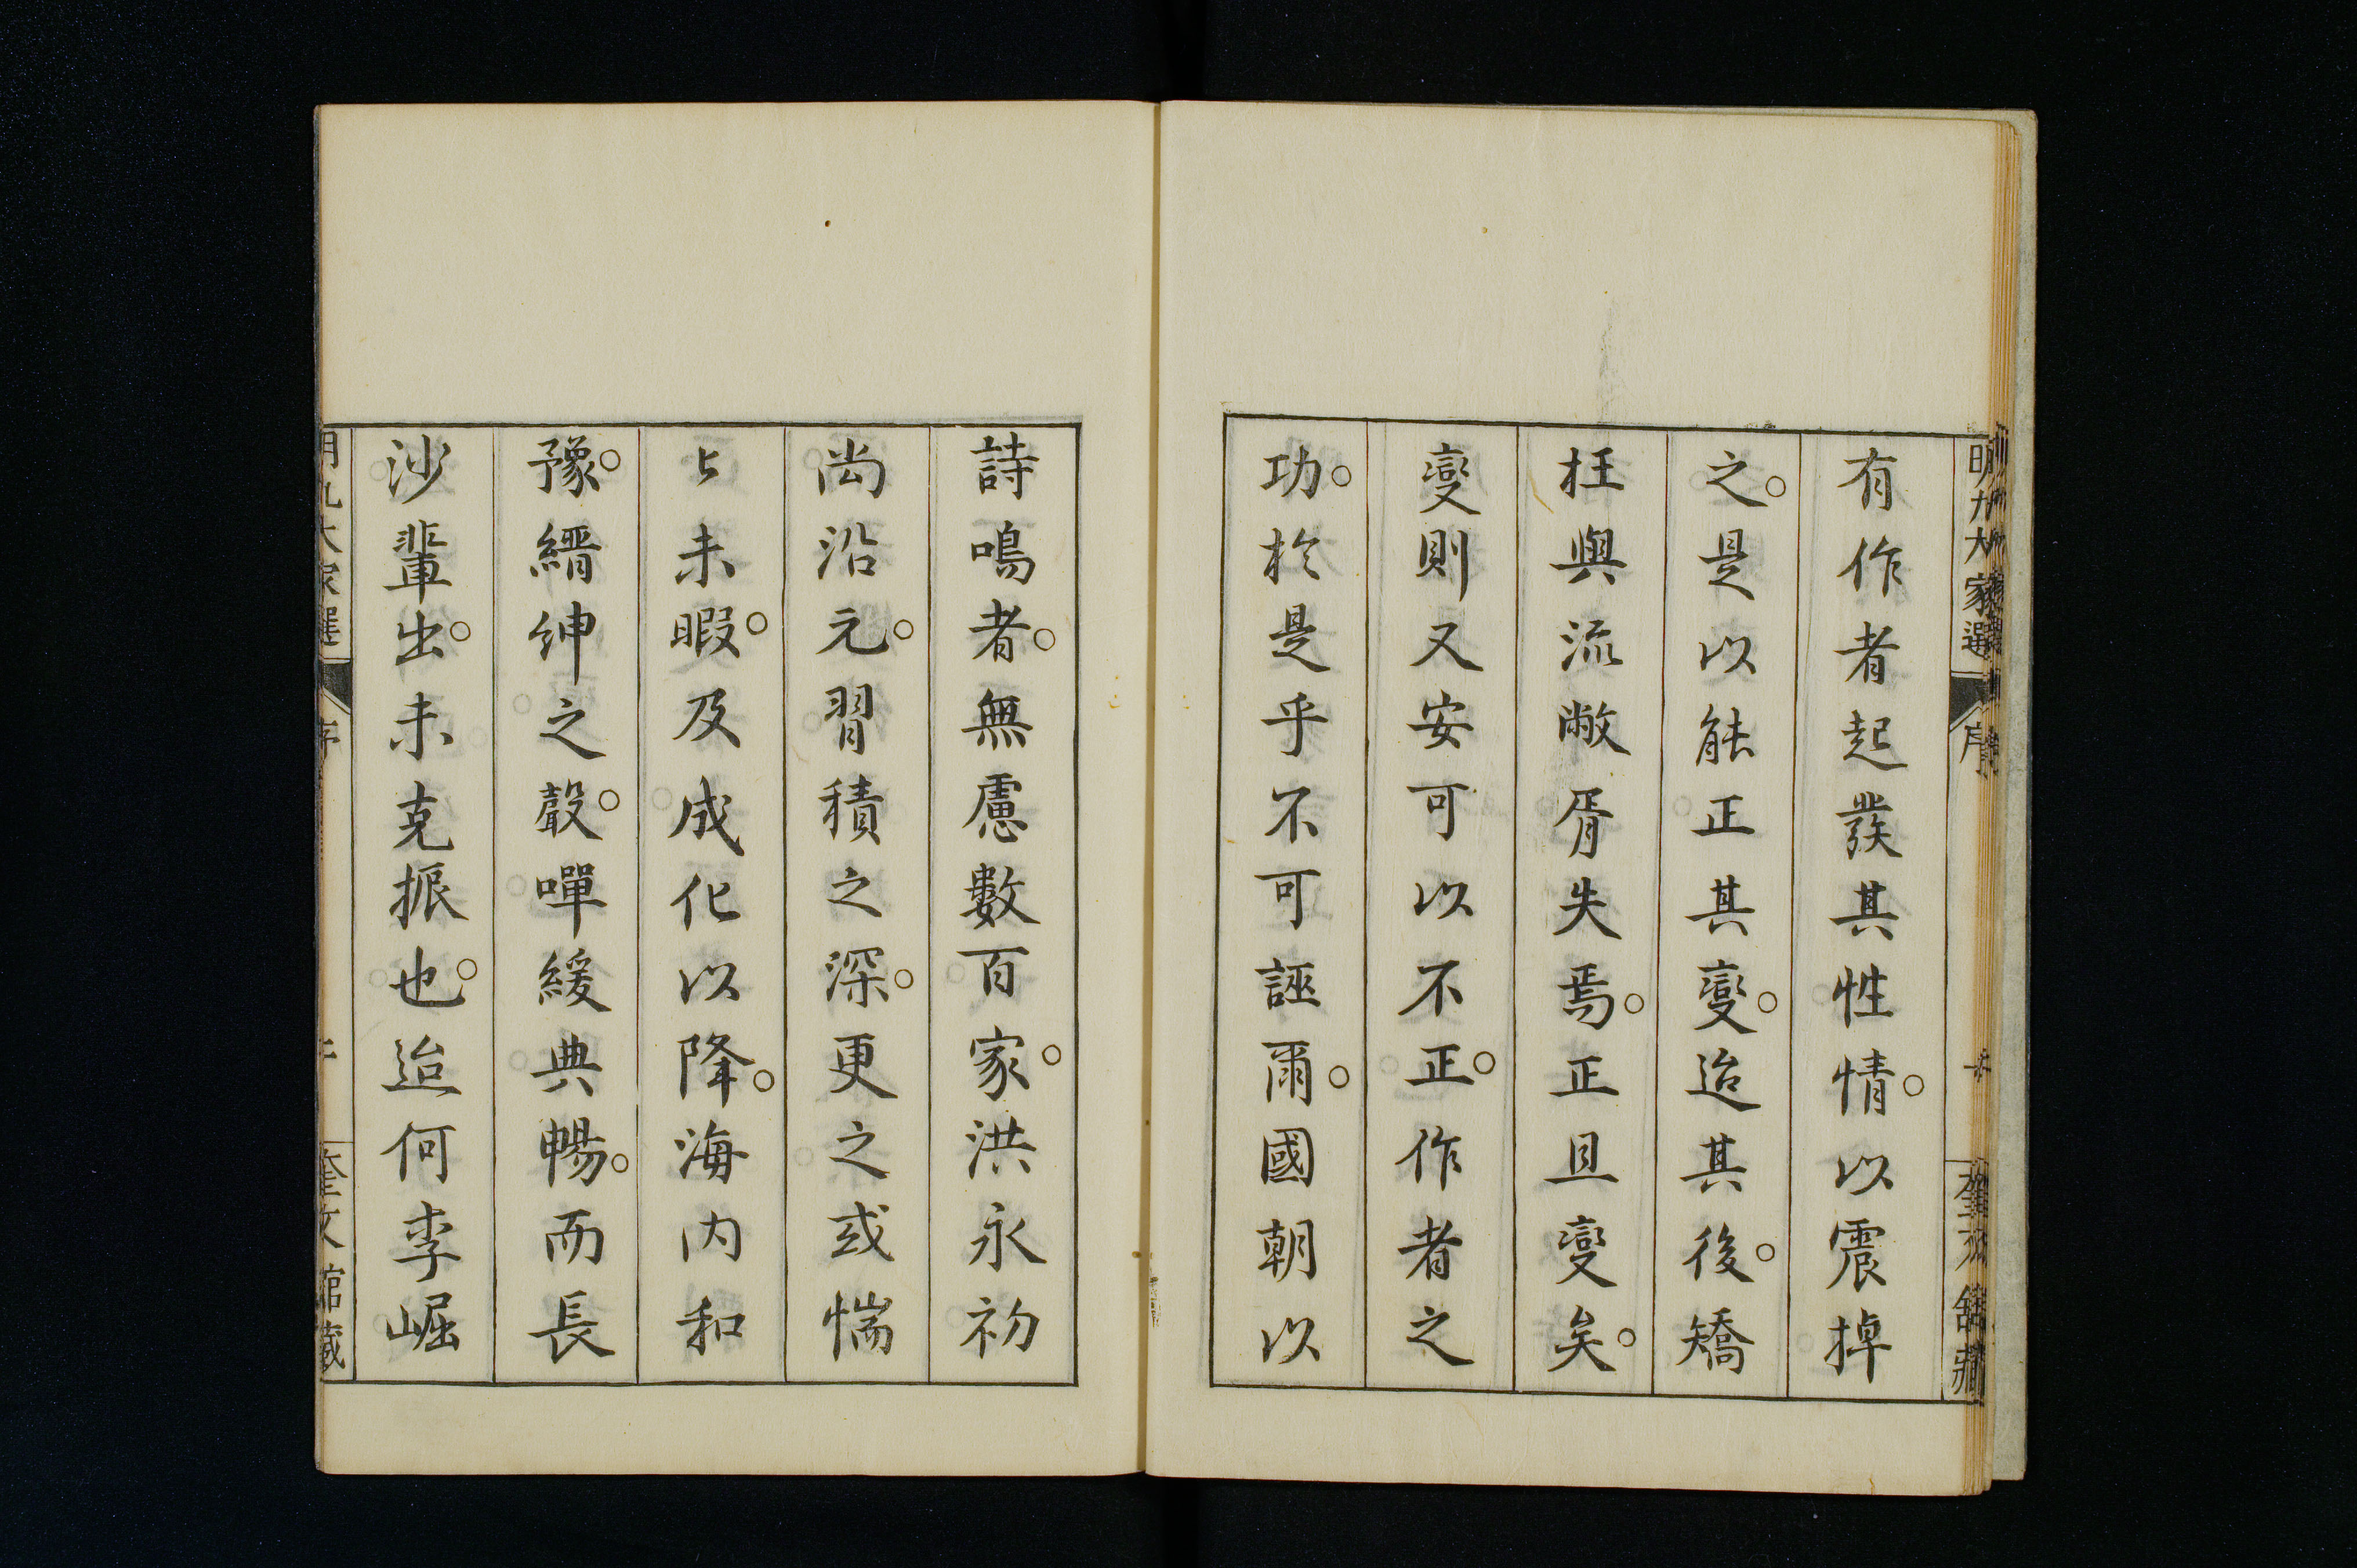 明九大家選 序 奎文館藏
有作者起發其性情。以震掉
之。是以能正其變。迨其後。矯
枉與流敝胥失焉。正且變矣。
變則又安可以不正。作者之
功。於是乎不可誣爾。國朝以
詩鳴者。無慮數百家。洪永初
尚沿元。習積之深。更之或惴
〻未暇。及成化以降。海內和
豫。縉紳之聲。嘽緩典暢。而長
沙輩出。未克振也。迨何李崛
明九大家選 序 奎文館藏